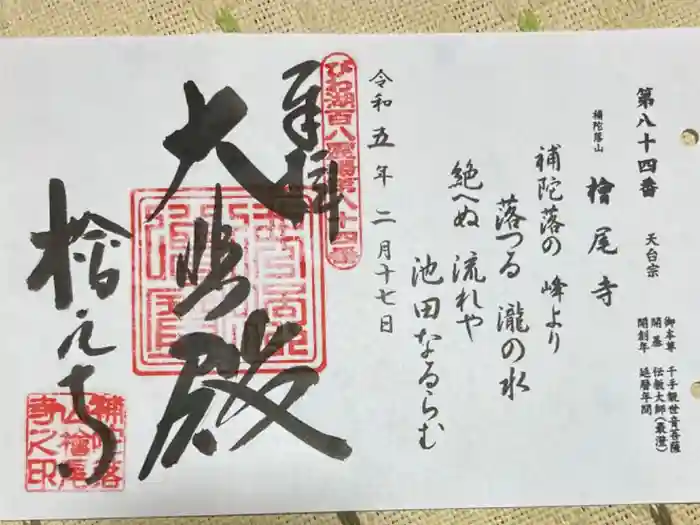 第八十四番 天台宗
補陀落山 檜尾寺
御本尊 千手観世音菩薩
開基 伝教大師(最澄)
開創年 延暦年間
補陀落の 峰より
落つる 瀧の水
絶へぬ 流れや
池田なるらむ
令和五年二月十七日
びわ湖百八霊場第八十四番
奉拝
大悲殿
檜尾寺
補陀落
山檜尾
寺之印